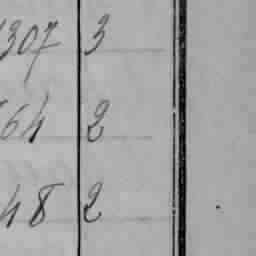 307 3
64 2
48 2